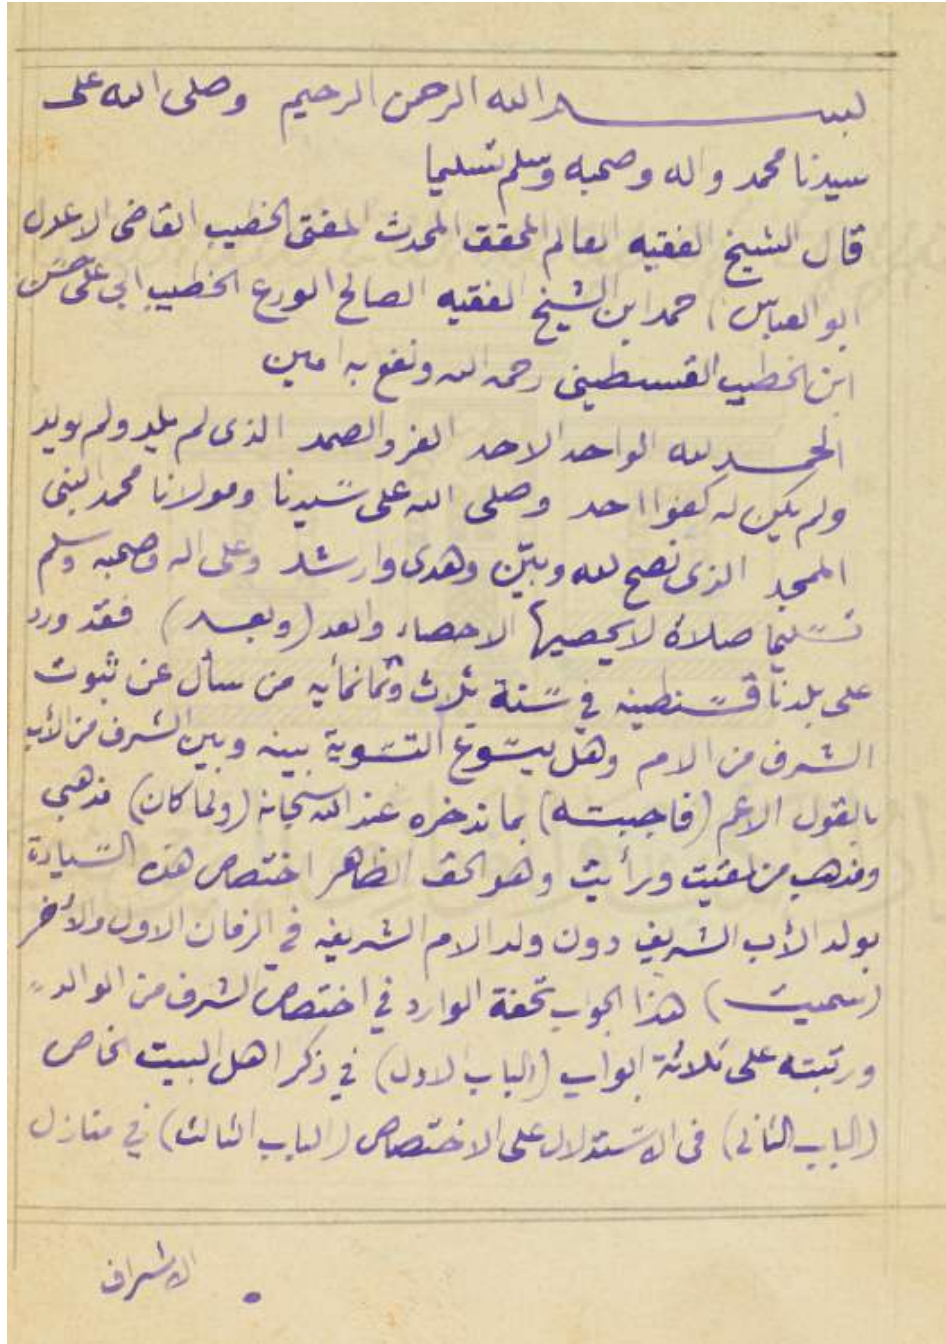 بسم الله الرحمن الرحيم وصلى الله على
سيدنا محمد واله وصحبه وسلم تسليما
قال الشيخ الفقيه العالم المحقق المحدث المفتى الخطيب القاضى الاعدل
ابو العباس احمد ابن الشيخ الفقيه الصالح الورع الخطيب ابى على حسن
ابن الخطيب القسطينى رحمه الله ونفع به امين
الحمد لله الواحد الاحد الفرد الصمد الذى لم يلد ولم يولد
ولم يكن له كفوا احد وصلى الله على سيدنا ومولانا محمد النبى
الممجد الذى نصح لله وبيّن وهدى وارشد وعلى اله وصحبه وسلم
تسليما صلاة لا يحصيها الاحصاء والعد (وبعد) فقد ورد
على بلدنا قسنطينه في سنة ثلاث وثمانمأيه من سأل عن ثبوت
الشرف من الام وهل يسوغ التسوية بينه وبين الشرف من الأب
بالقول الاعم (فاجبته) بما ندخره عند الله سبحانه (ولما كان) مذهبي
ومذهب من لقيت ورأيت وهو الحق الظاهر اختصاص هذه السيادة
بولد الأب الشريف دون ولد الام الشريفه في الزمان الاول والأخر
(سميت) هذا الجواب تحفة الوارد في اختصاص الشرف من الوالد
ورتبته على ثلاثة ابواب (الباب الاول) في ذكر اهل البيت الخاص
(الباب الثانى) فى الاستدلال على الاختصاص (الباب الثالث) في منازل
الاشراف